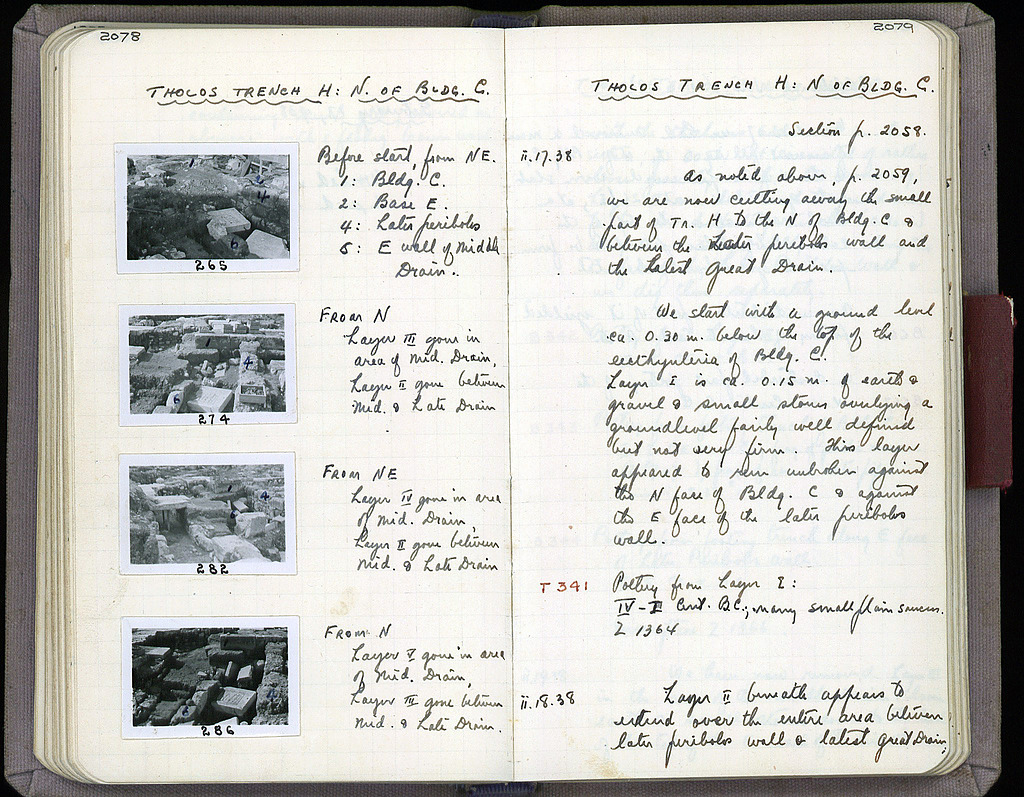 2078
THOLOS TRENCH H: N. OF BLDG. C.
Before start, from NE.
1: Bldg. C.
2: Base E.
4: Later peribolos
5: E wall of Middle
Drain.
265
FROM N
Layer III gone in
area of Mid. Drain,
Layer II gone between
Mid. & Late Drain
274
FROM NE
Layer IV gone in area
of Mid. Drain,
Layer II gone between
Mid. & Late Drain
282
FROM N
Layer V gone in area
of Mid. Drain,
Layer III gone between
Mid. & Late Drain.
286
2079
THOLOS TRENCH H: N OF BLDG. C.
Section p. 2058.
ii.17.38
As noted above, p. 2059,
we are now cutting away the small
part of Tr. H to the N of Bldg. C &
between the later peribolos wall and
the latest Great Drain.
We start with a ground level
ca. 0.30 m. below the top of the
euthynteria of Bldg. C.
Layer I is ca. 0.15 m. of earth &
gravel & small stones overlying a
groundlevel fairly well defined
but not very firm. This layer
appeared to run unbroken against
the N face of Bldg. C & against
the E face of the later peribolos
wall.
T 341
Pottery from Layer I:
Cent. B.C.; many small plain saucers.
Σ 1364
ii.18.38
Layer II beneath appears to
extend over the entire area between
later peribolos wall & latest great Drain,